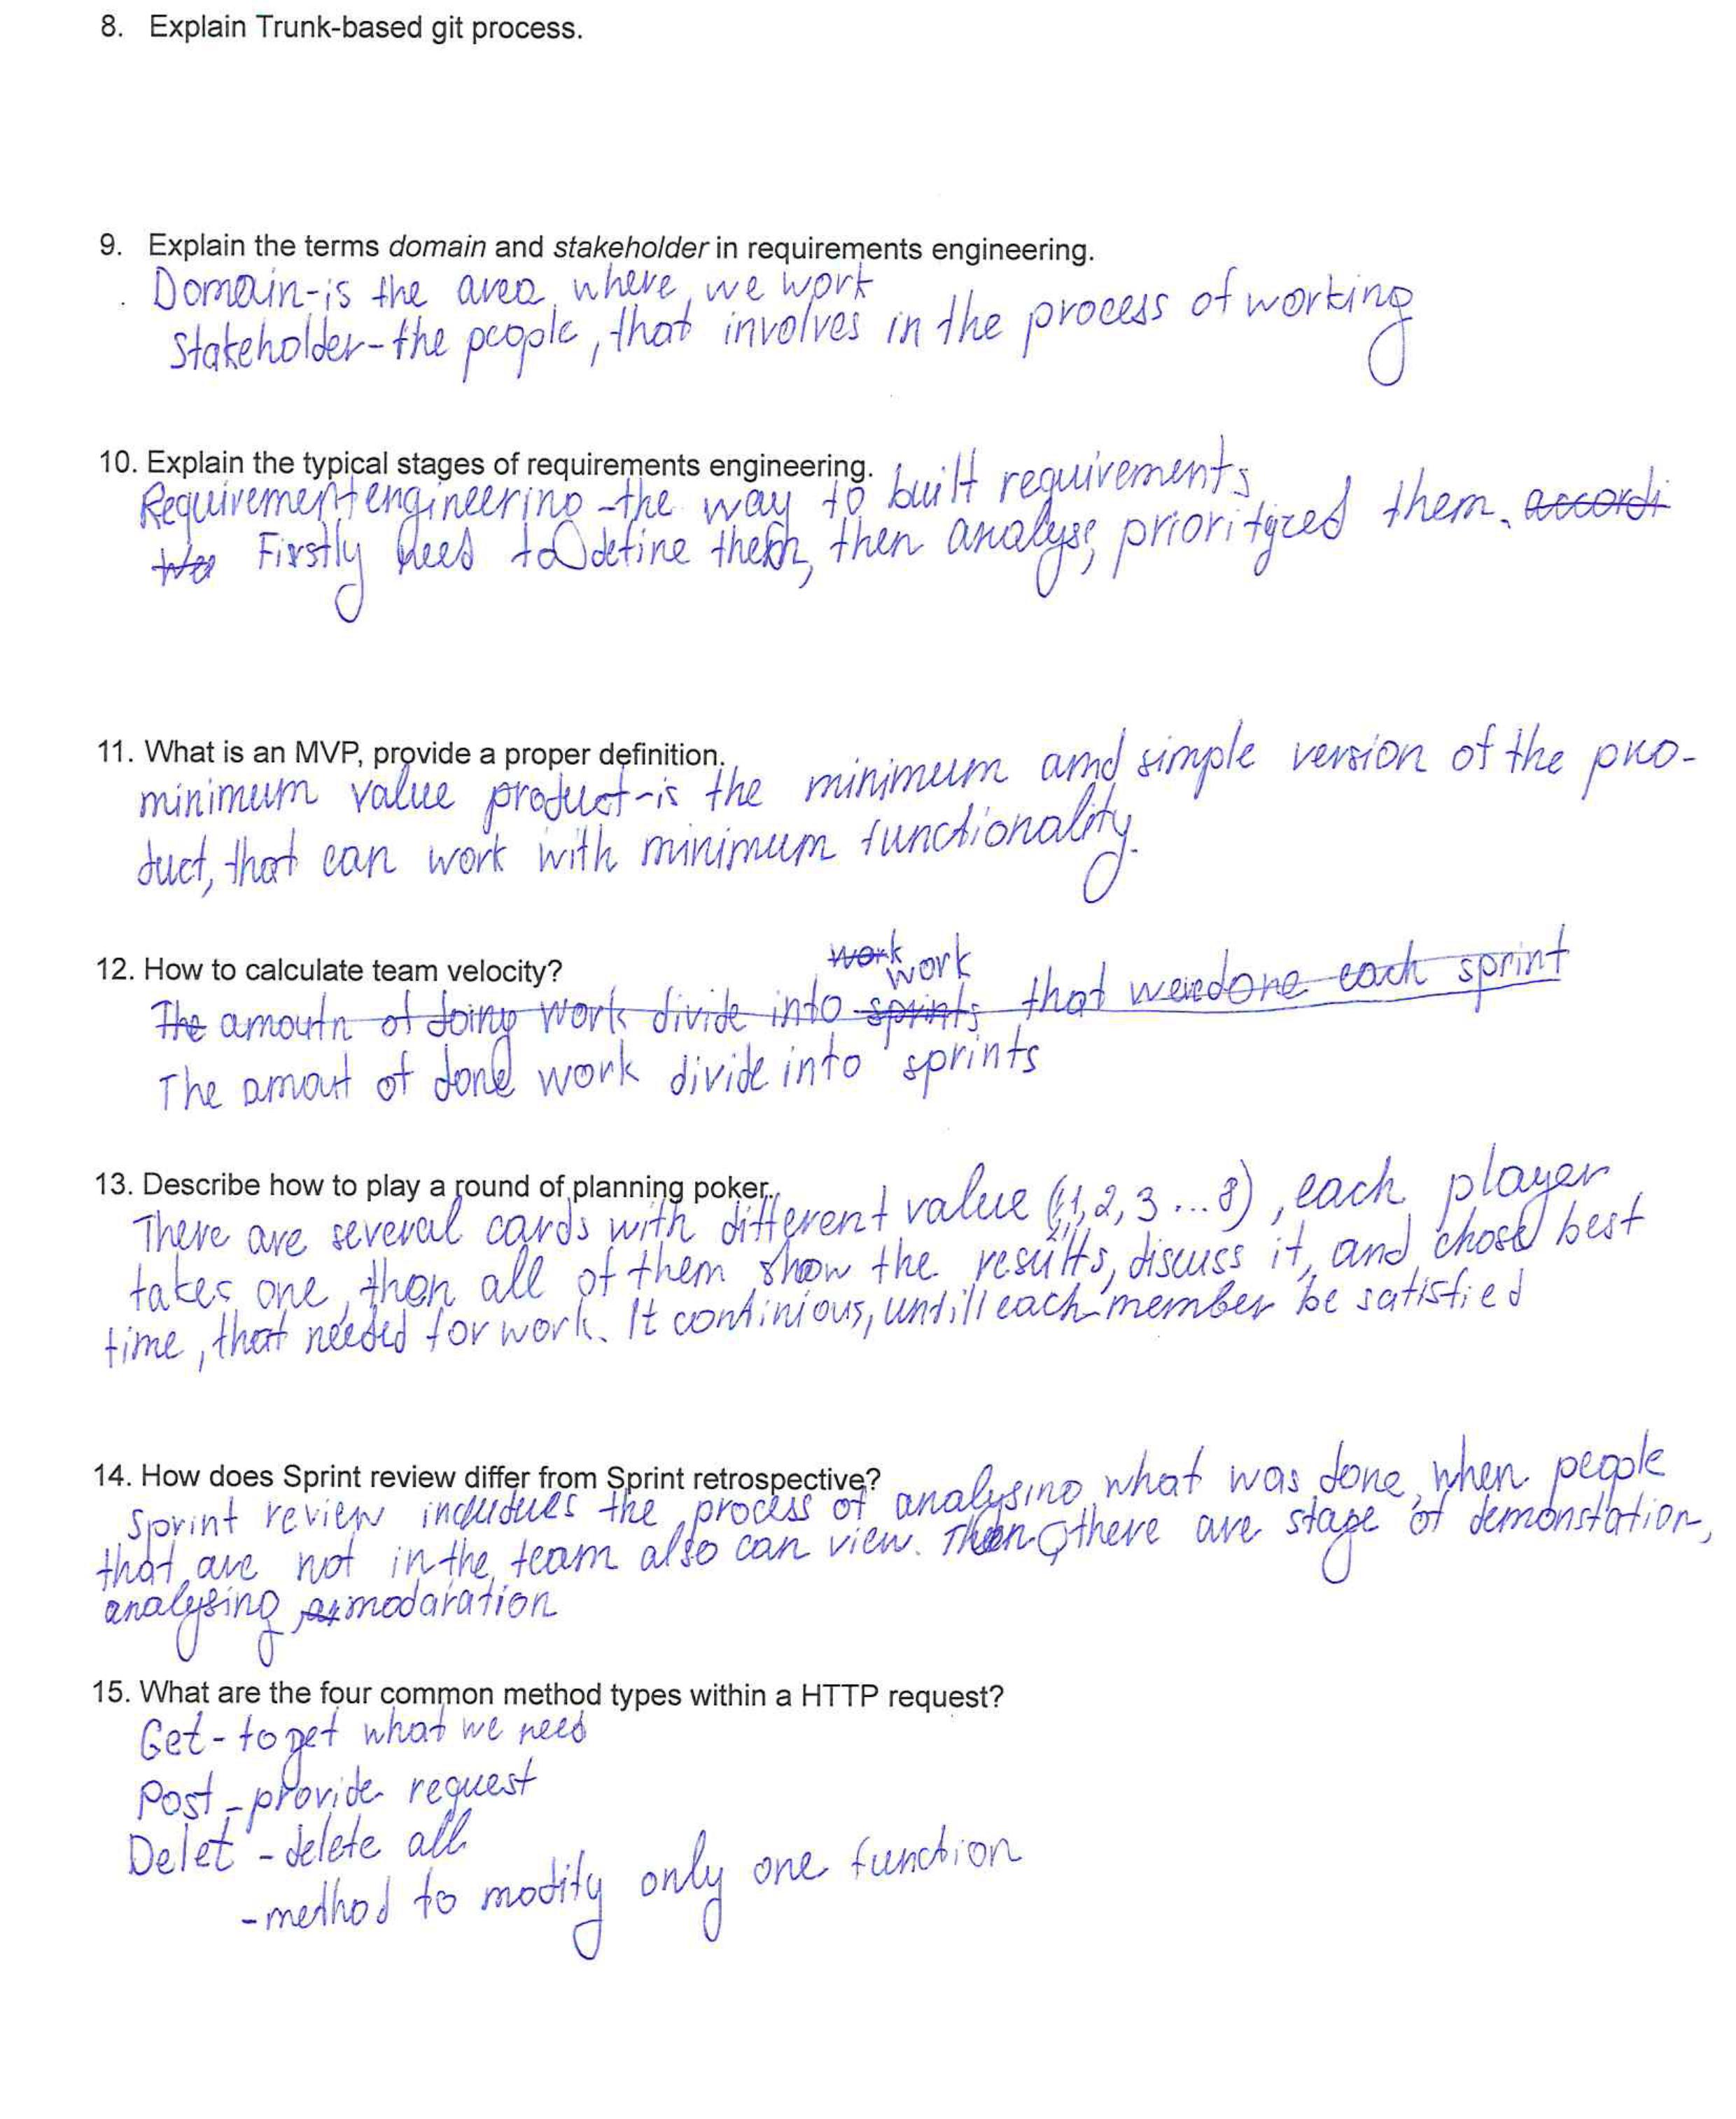 8. Explain Trunk-based git process.
9. Explain the terms domain and stakeholder in requirements engineering.
Domain-is the area, where, we work
Stakeholder-the people, that involves in the process of working
10. Explain the typical stages of requirements engineering.
Requirement engineering -the way to built requirements
Firstly need to define them, then analyse, prioritized them. accordi
11. What is an MVP, provide a proper definition.
minimum value product-is the minimum and simple version of the pro-
duct, that can work with minimum functionality.
12. How to calculate team velocity?
work work
The amoutn of doing work divide into sprints that were done each sprint
The amout of done work divide into sprints
13. Describe how to play a round of planning poker.
There are several cards with different value (1,2,3...8), each player
takes one, then all of them show the results, discuss it, and chose best
time, that needed for work. It continious, untill each member be satisfied
14. How does Sprint review differ from Sprint retrospective?
Sprint review includues the process of analysing what was done, when people
that are not in the team also can view. Then there are stage of demonstation,
analysing, modaration
15. What are the four common method types within a HTTP request?
Get - to get what we need
Post - provide request
Delet - delete all
- method to modify only one function